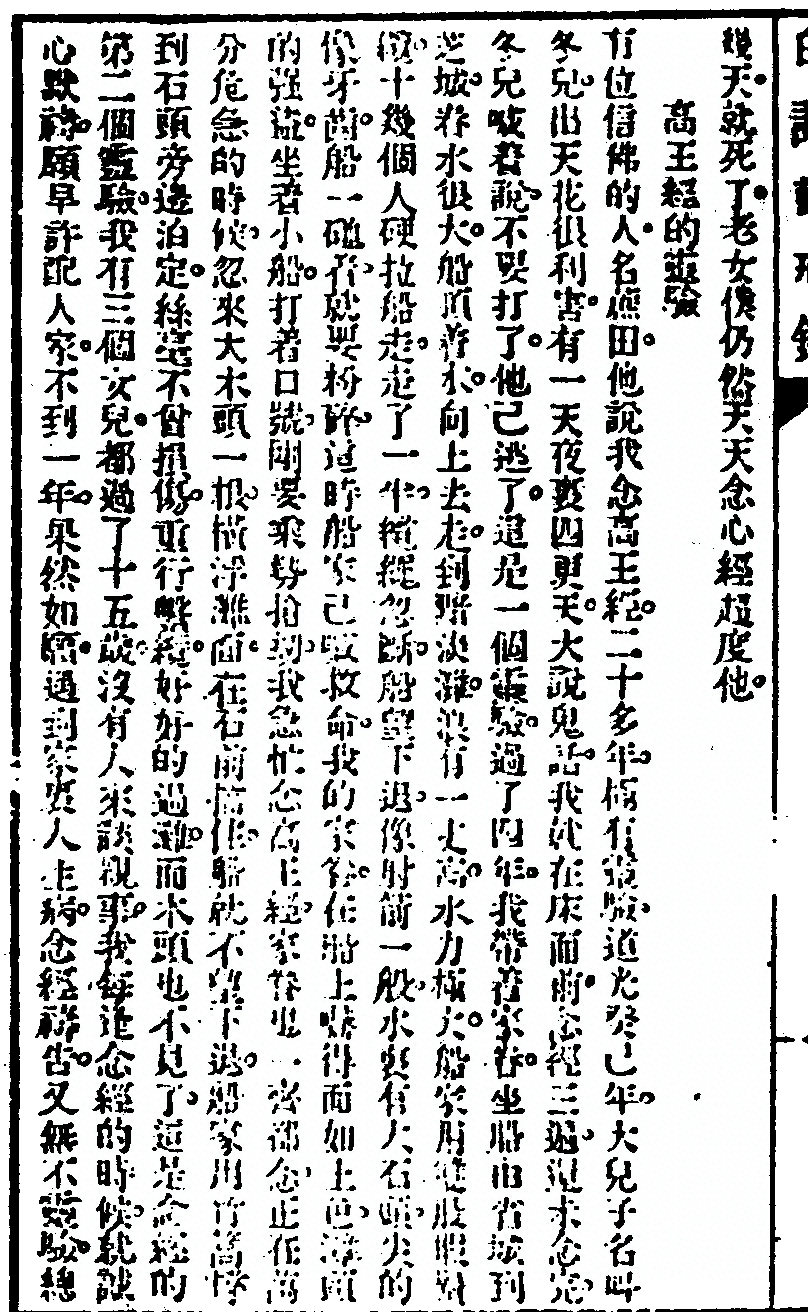 幾天就死了。老女僕仍然天天念心經超度他。
高王經的靈驗
有位信佛的人。名應田。他說我念高王經。二十多年。極有靈驗。道光癸巳年。大兒子名叫
冬兒。出天花很利害。有一天夜裏四更天。大說鬼話。我就在床面前。念經三遍。還未念完。
冬兒喊着說。不要打了。他已逃了。這是一個靈驗。過了四年。我帶着家眷。坐船由省城到
芝城。春水很大。船頂着水。向上去。走到 灘。浪有一丈高。水力極大。船家用 股 對
縴。十幾個人硬拉船走。走了一半。縴繩忽斷。船望下退。像射箭一般。水裏有大石頭。尖的
像牙齒。船一碰着。就要粉碎。這時船家已喊救命。我的家眷在船上。嚇得面如土色。 頭
的强盜。坐着小船。打着口號。剛要乘勢搶刧。我急忙念高王經。家眷也一齊都念。正在萬
分危急的時候。忽來大木頭一根。橫浮灘面。在石前擋住。船就不望下退。船家用竹篙撑
到石頭旁邊泊定。絲毫不曾損傷。重行繫纜。好好的過灘。而木頭也不見了。這是念經的
第二個靈驗。我有三個女兒。都過了十五歲。沒有人來談親事。我每逢念經的時候。就誠
心默禱。願早許配人家。不到一年。果然如願。遇到家裏人生病。念經禱告。又無不靈驗。總